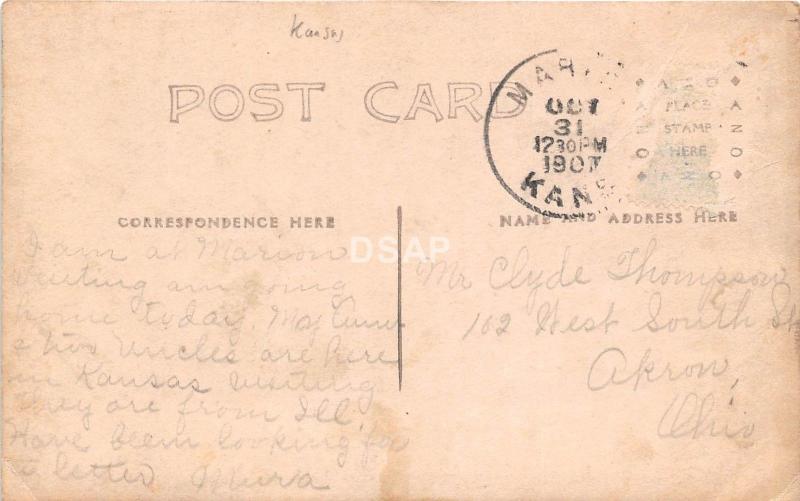 Kansas
POST CARD
MAR
OCT
31
1230PM
1907
KANS
ANO
PLACE
STAMP
HERE
CORRESPONDENCE HERE
NAME AND ADDRESS HERE
DSAP
I am at Marion
Visiting am going
home today. My Aunt
& two Uncles are here
in Kansas visiting
they are from Ill.
Have been looking for
a letter
Mr Clyde Thompson
102 West South St
Akron,
Ohio